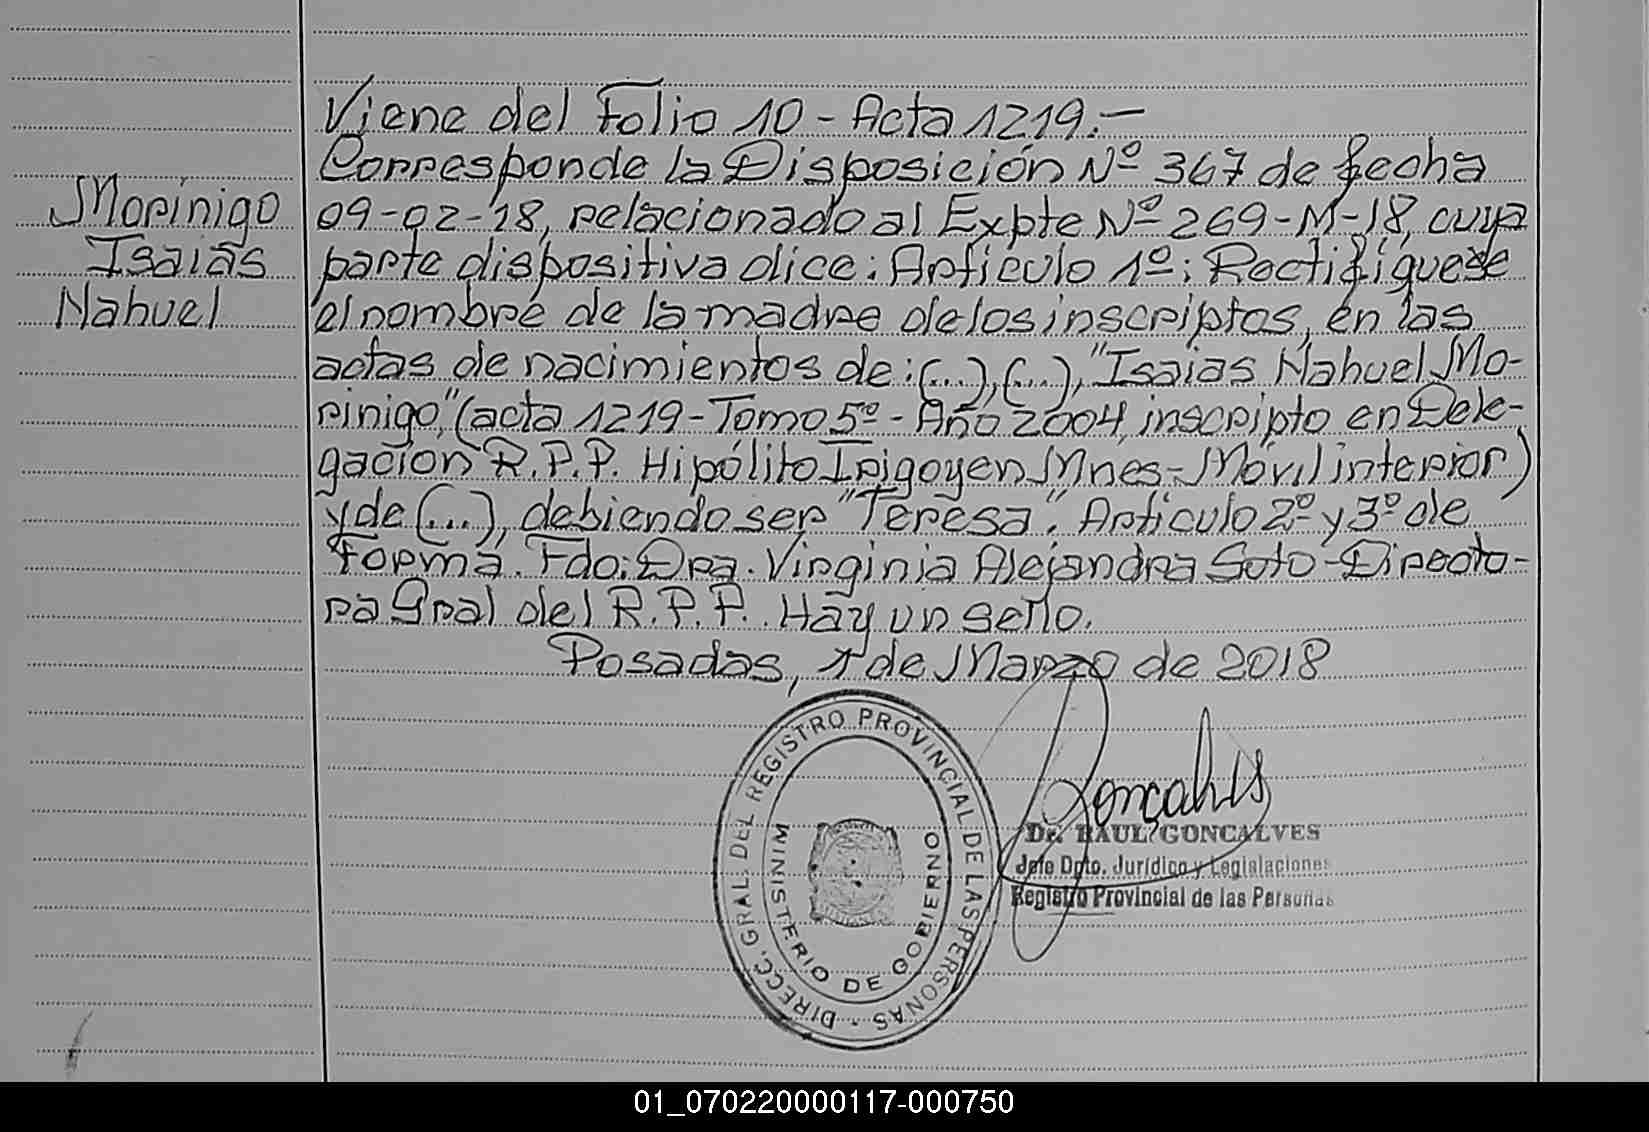 Viene del Folio 10 - Acta 1219.-
Corresponde la Disposición Nº 367 de fecha
Morínigo
09-02-18, relacionado al Expte Nº 269-M-18, cuya
Isaías
parte dispositiva dice: Artículo 1º: Rectifíquese
Nahuel
el nombre de la madre de los inscriptos, en las
actas de nacimientos de: (...), (...), "Isaias Nahuel Mo-
rinigo," (acta 1219 - Tomo 5º - Año 2004, inscripto en Dele-
gación R.P.P. Hipólito Irigoyen Mnes - Móvil interior)
y de (...), debiendo ser "Teresa". Artículo 2º y 3º de
Forma. Fdo: Dra. Virginia Alejandra Soto - Directo-
ra Gral del R.P.P. Hay un sello.
Posadas, 1 de Marzo de 2018
DIRECC. GRAL. DEL REGISTRO PROVINCIAL DE LAS PERSONAS -
MINISTERIO DE GOBIERNO
Goncalves
Dr. RAUL GONCALVES
Jefe Dpto. Jurídico y Legislaciones
Registro Provincial de las Personas
01_070220000117-000750